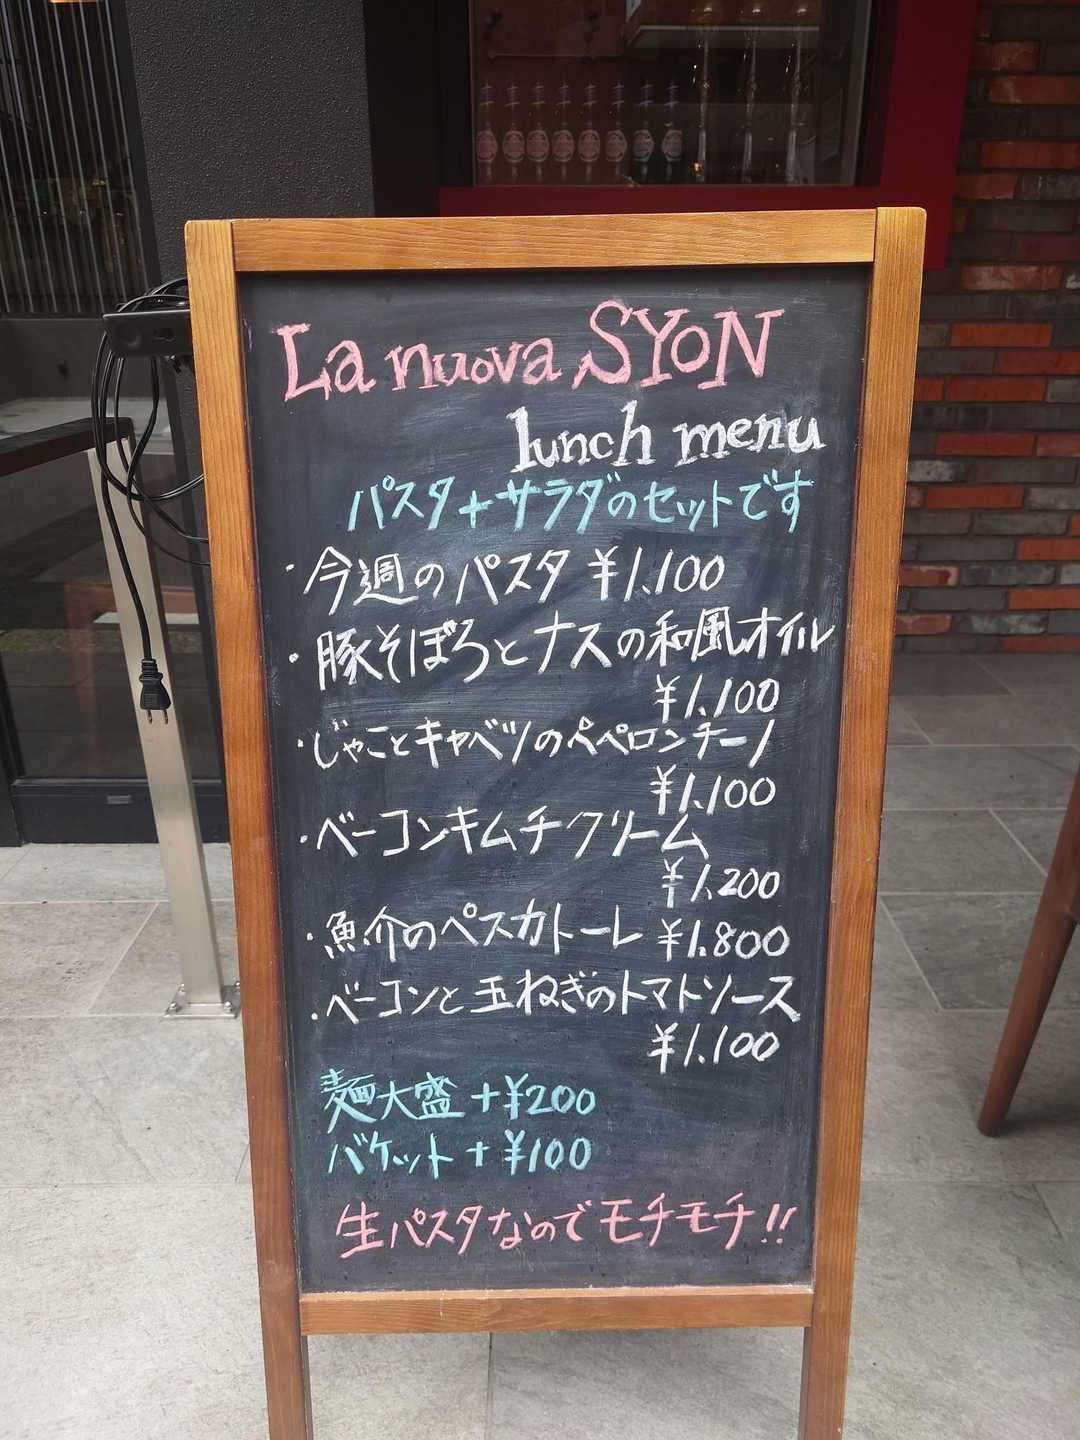 La nuova SYON
lunch menu
パスタ+サラダのセットです
・今週のパスタ ¥1.100
・豚そぼろとナスの和風オイル
¥1.100
・じゃことキャベツのペペロンチーノ
¥1.100
・ベーコンキムチクリーム
¥1.200
・魚介のペスカトーレ ¥1.800
・ベーコンと玉ねぎのトマトソース
¥1.100
麺大盛 +¥200
バケット +¥100
生パスタなのでモチモチ!!